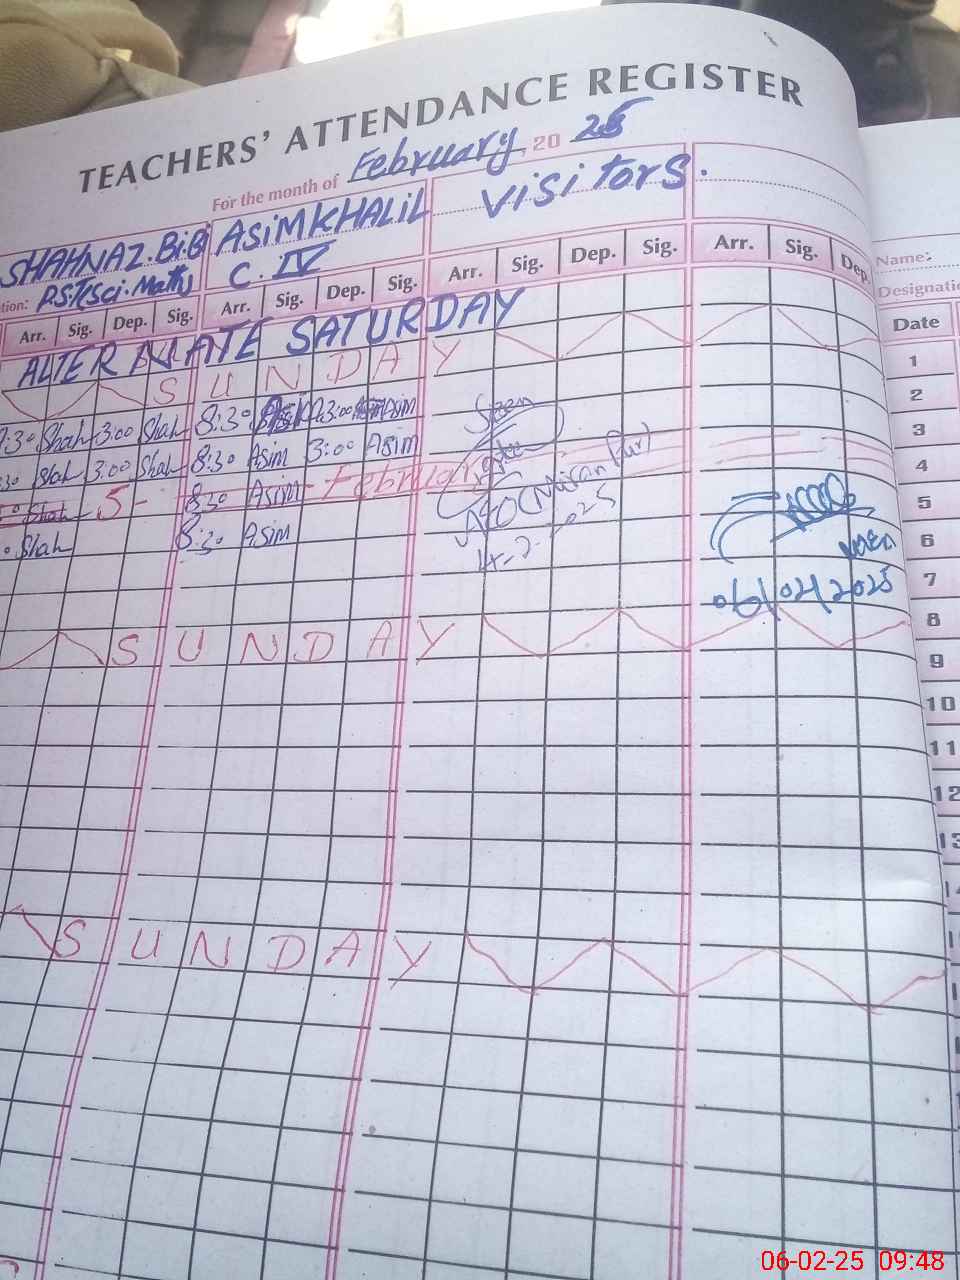 TEACHERS' ATTENDANCE REGISTER
For the month of February, 20 25
SHAHNAZ.BiBi ASiM KHALiL Visitors.
tion: P.S.T(Sci.Math) C. IV
Arr. Sig. Dep. Sig. Arr. Sig. Dep. Sig. Arr. Sig. Dep. Sig. Arr. Sig. Dep.
Name:
Designatio
Date
ALTERNATE SATURDAY 1
SUNDAY 2
:30 Shah 3:00 Shah 8:30 3:00 Asim 3
:30 Shah 3:00 Shah 8:30 Asim 3:00 Asim 4
Shah 5 - February 8:30 Asim 5
Shah 8:30 Asim 6
(Mosian Pur)
4-2-2025
7
06/02/2025
8
SUNDAY 9
10
11
12
13
SUNDAY
06-02-25 09:48